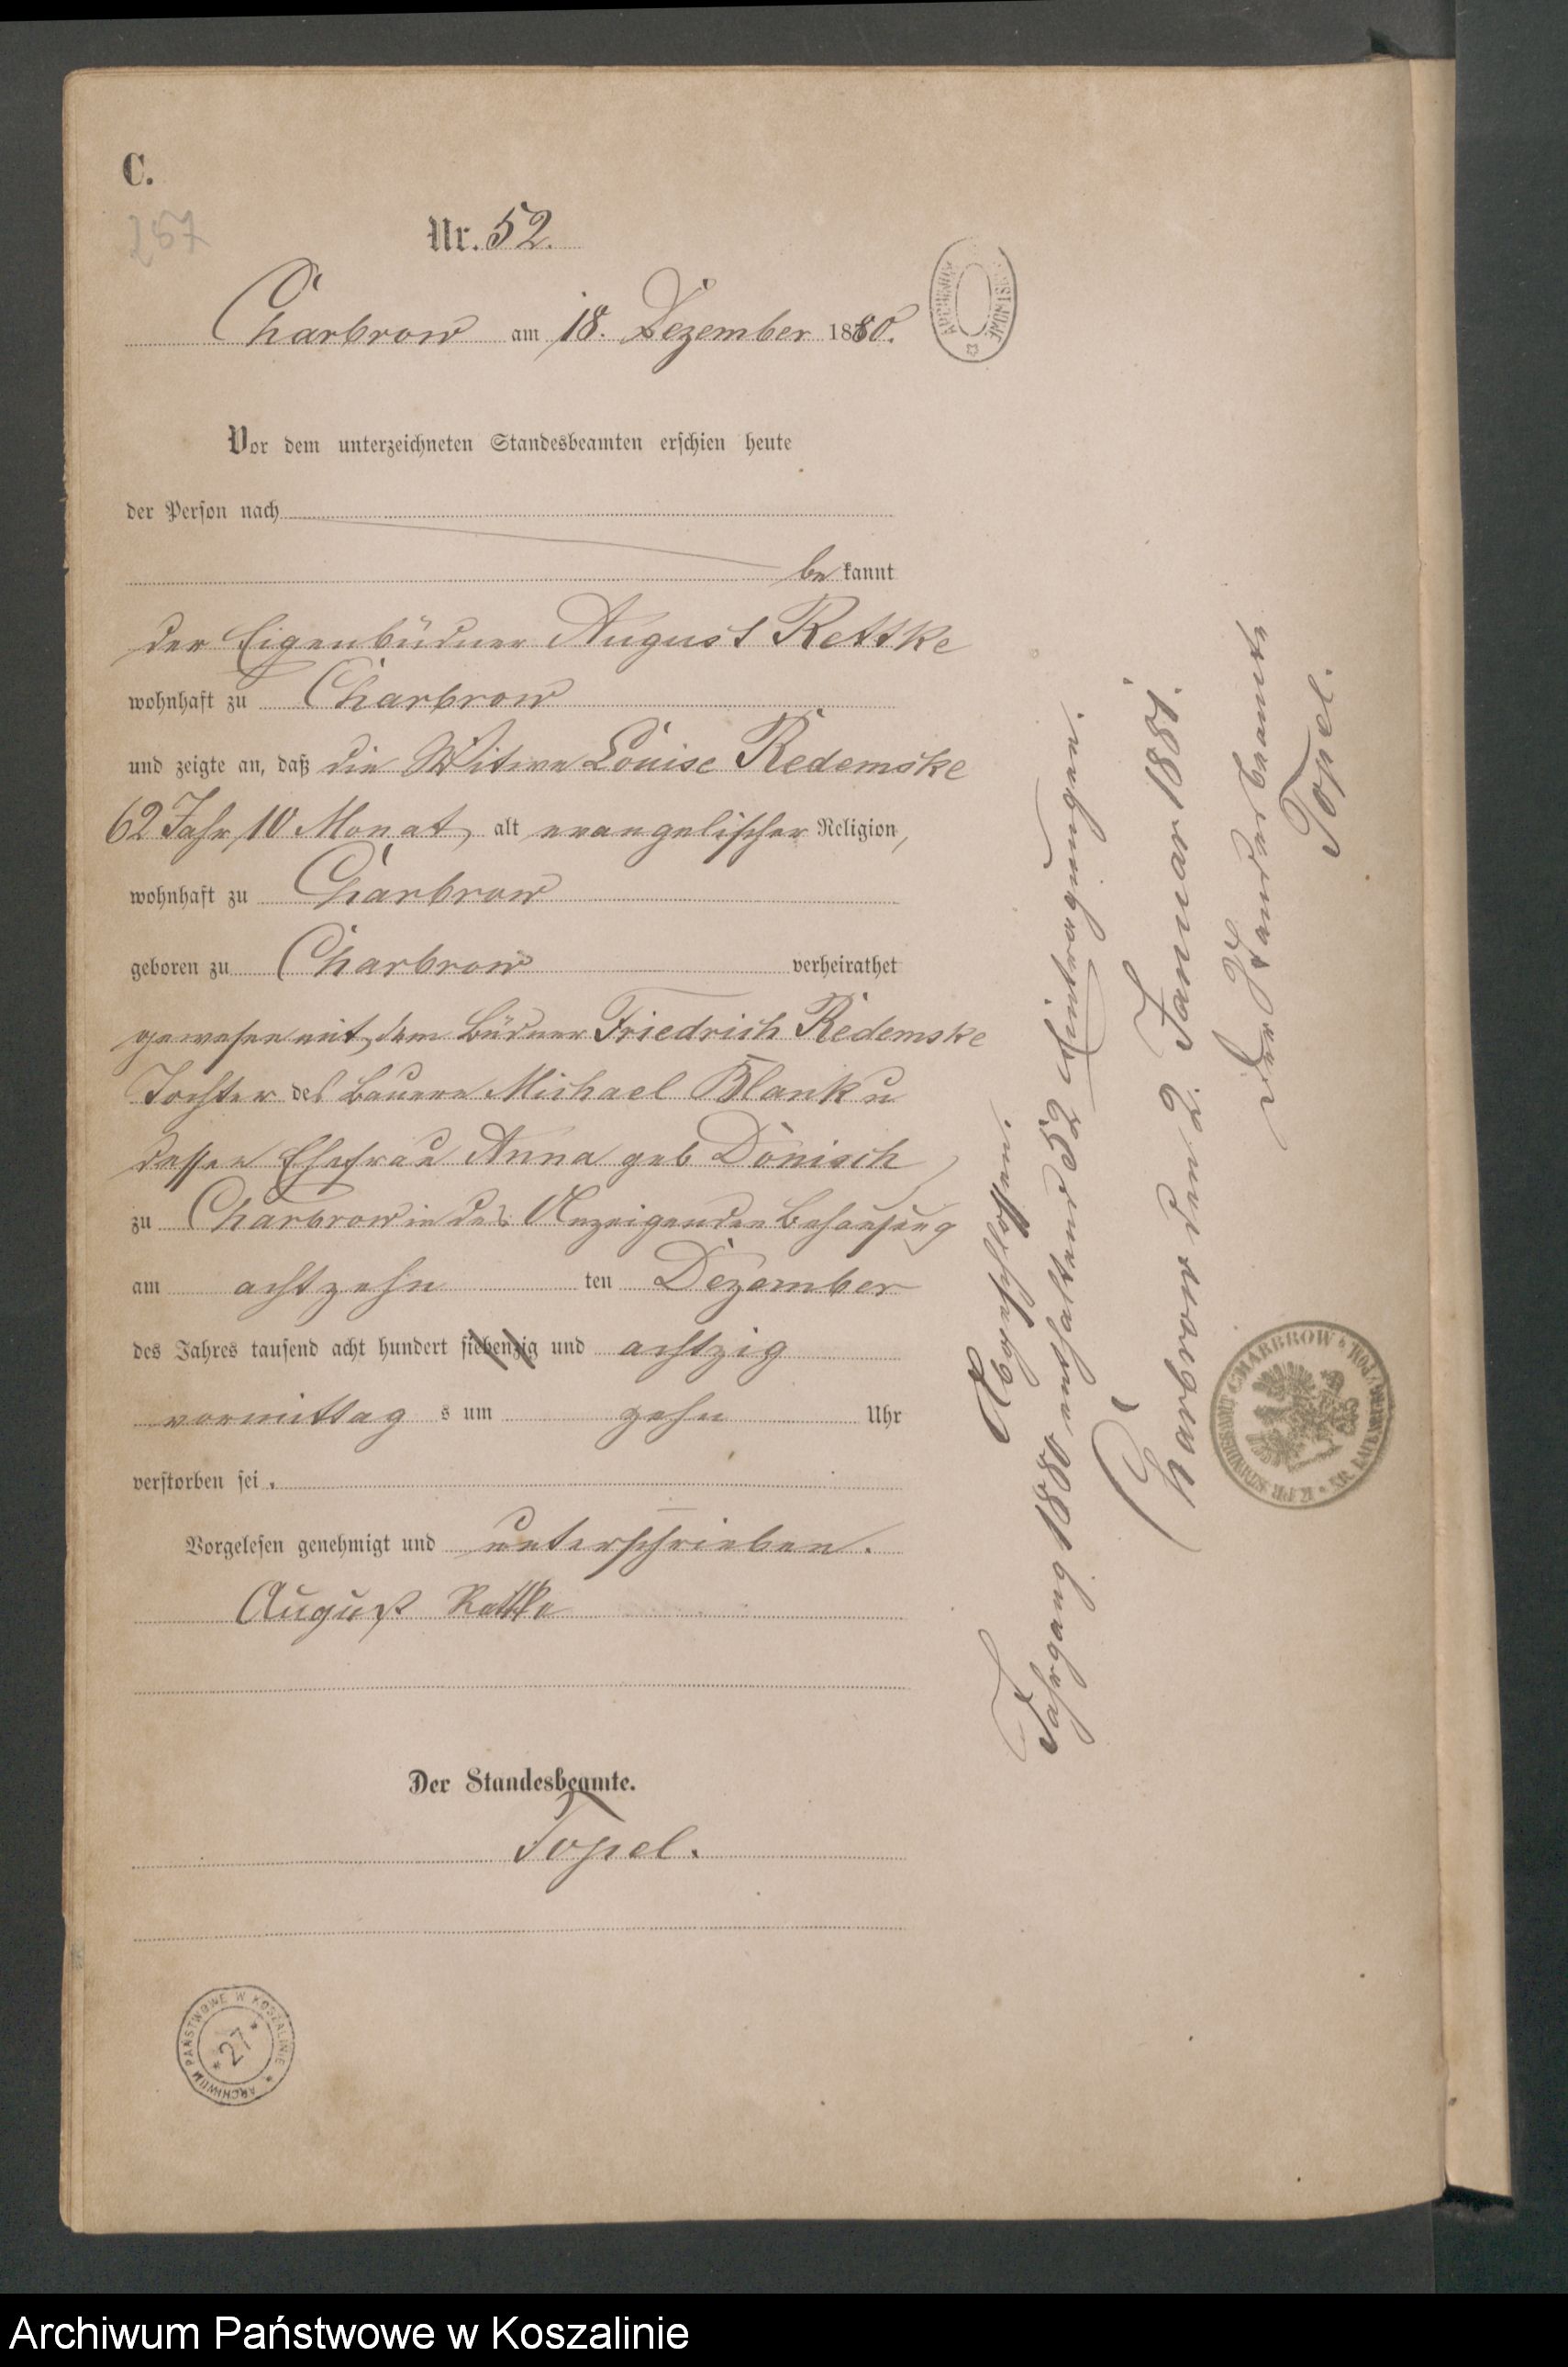 C.
257
Nr. 52.
Charbrow am 18. Dezember 1880.
Vor dem unterzeichneten Standesbeamten erschien heute
der Person nach
bekannt
der Eigenbüdner August Rettke
wohnhaft zu Charbrow
und zeigte an, daß die Witwe Louise Redemske
62 Jahr, 10 Monat, alt evangelischer Religion,
wohnhaft zu Charbrow
geboren zu Charbrow verheirathet
gewesen mit dem Büdner Friedrich Redemske
Tochter des Bauern Michael Blank u
dessen Ehefrau Anna geb Dönisch
zu Charbrow in des Anzeigenden Behausung
am achtzehn ten Dezember
des Jahres tausend acht hundert siebenzig und achtzig
vormittag s um zehn Uhr
verstorben sei.
Vorgelesen genehmigt und unterschrieben.
August Rettke
Der Standesbeamte.
Topel.
Abgeschlossen.
Jahrgang 1880 enthaltend 52 Eintragungen.
Charbrow den 2. Januar 1881.
Der Standesbeamte
Topel.
STANDESAMT CHARBROW
ARCHIWUM PAŃSTWOWE W KOSZALINIE
27
Archiwum Państwowe w Koszalinie